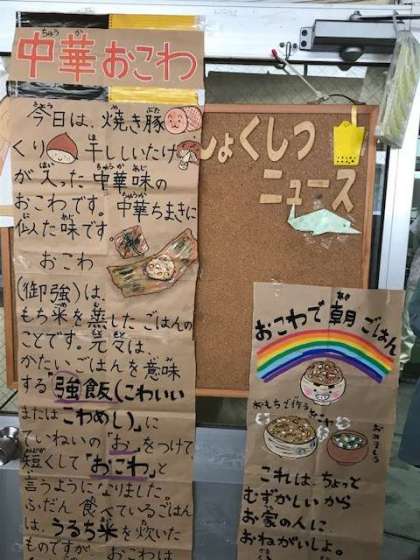 中華おこわ
今日は、焼き豚
くり 干ししいたけ
が入った 中華味の
おこわです。中華ちまきに
似た味です。
おこわ
(御強)は、
もち米を蒸したごはんの
ことです。元々は
かたいごはんを意味
する「強飯(こわいい
またはこわめし)」に
ていねいの「お」をつけて、
短くして「おこわ」と
言うようになりました。
ふだん食べているごはん
は、うるち米を炊いた
ものですが、おこわは
しょくしつ
ニュース
おこわで朝ごはん
おもちで作る
これは、ちょっと
むずかしいから
お家の人に
おねがいしよ